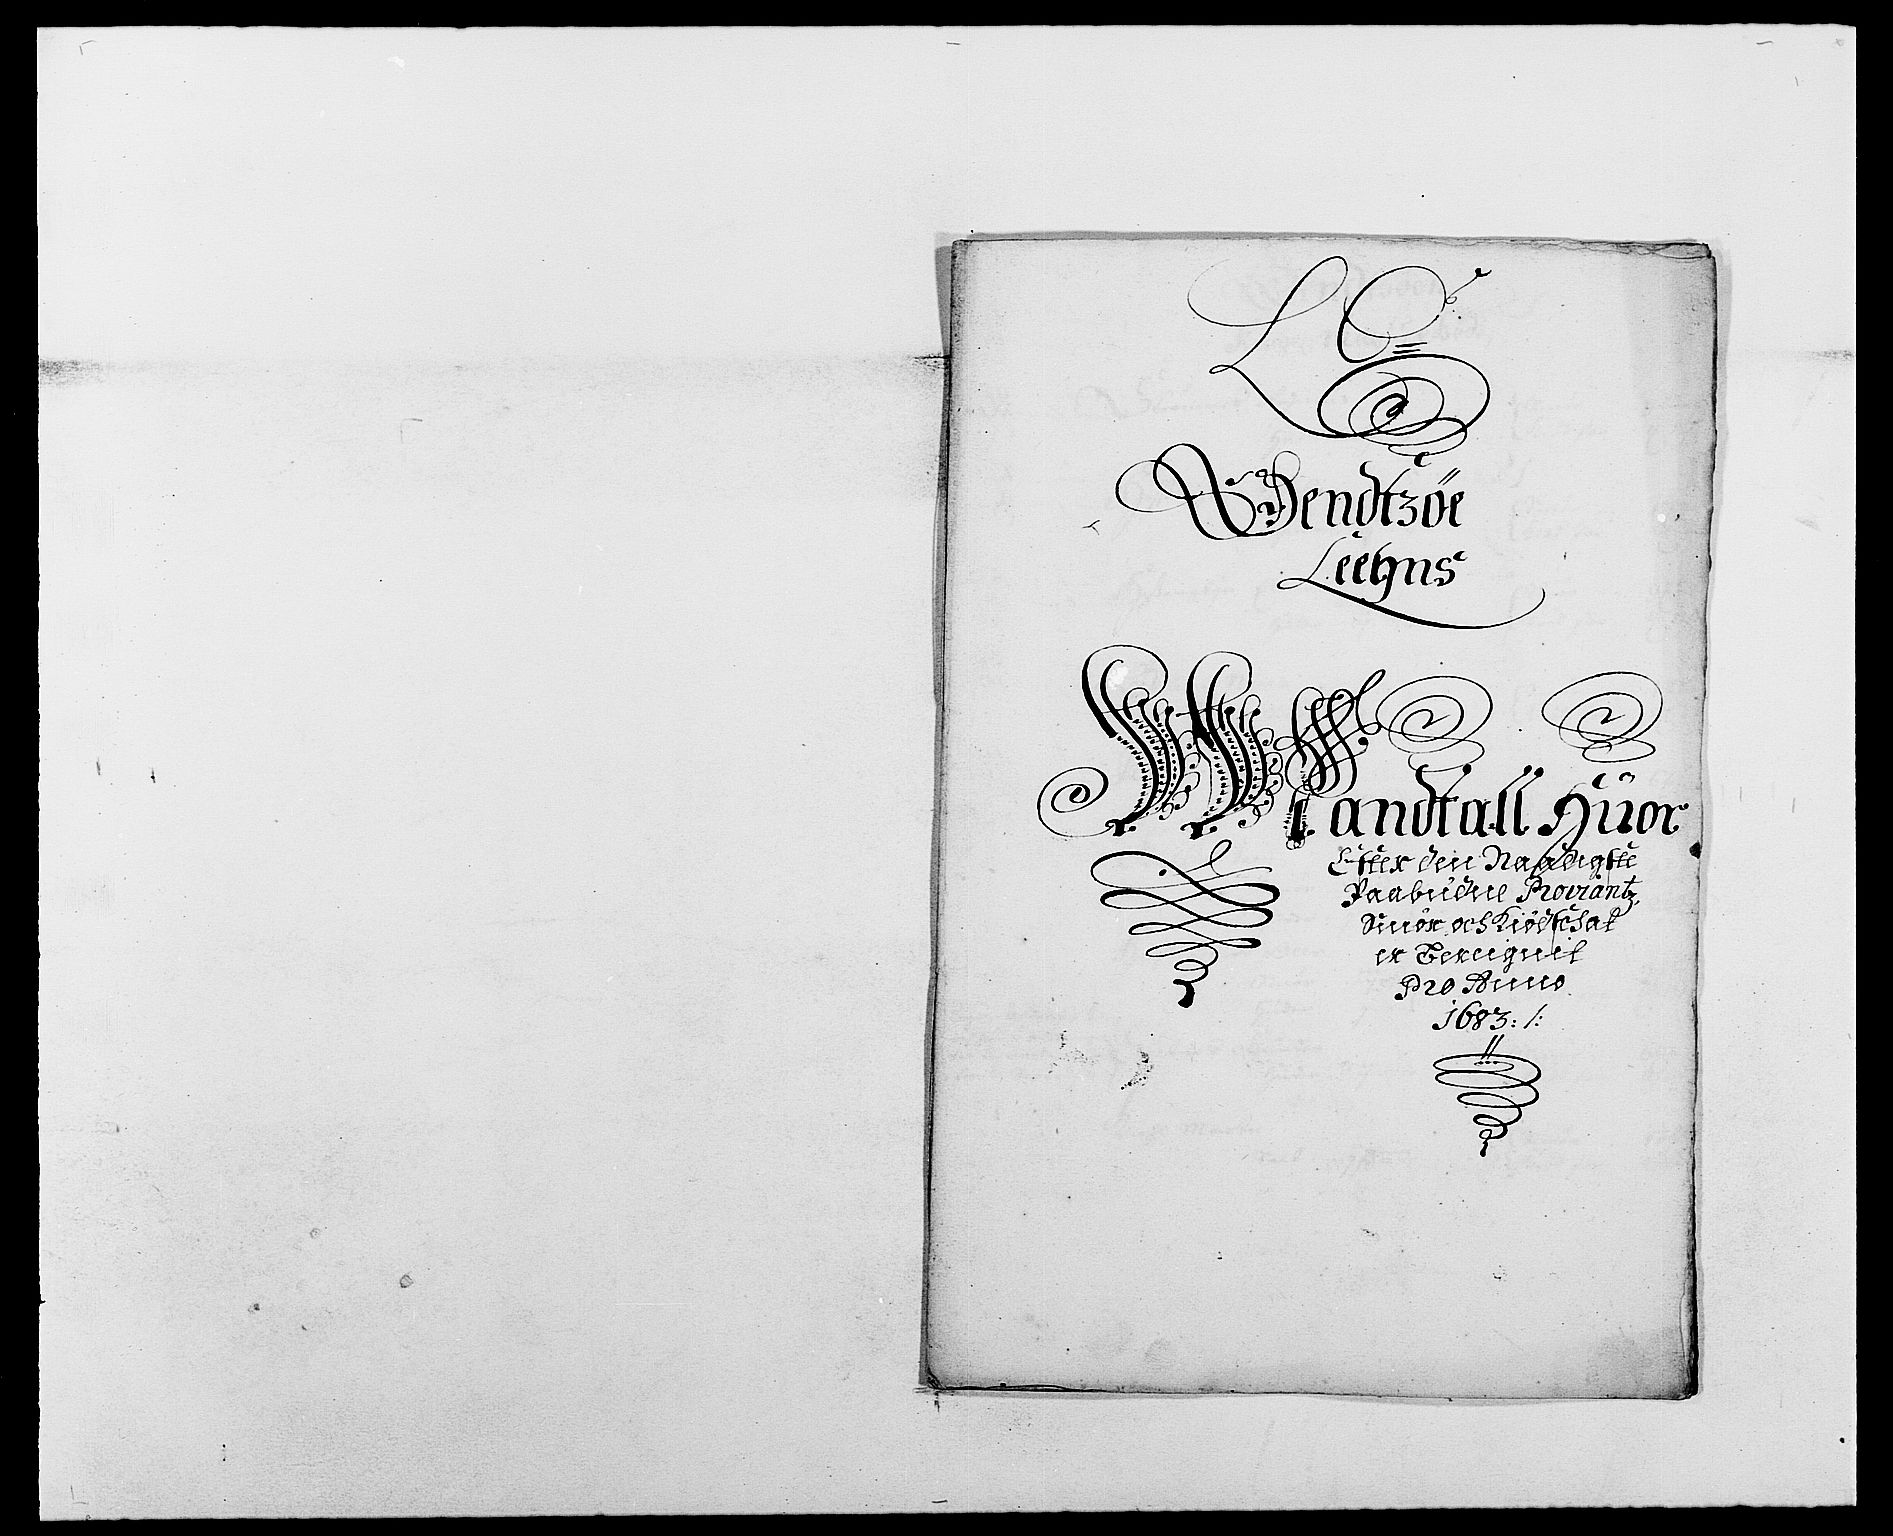 LC
Wendtzöe
Leehns
Mandtall Huor
Effter den Naadigste
Paabudne Proviantz,
Smör och Kiödschat
er Bereignit
Pro Anno
1683:/: